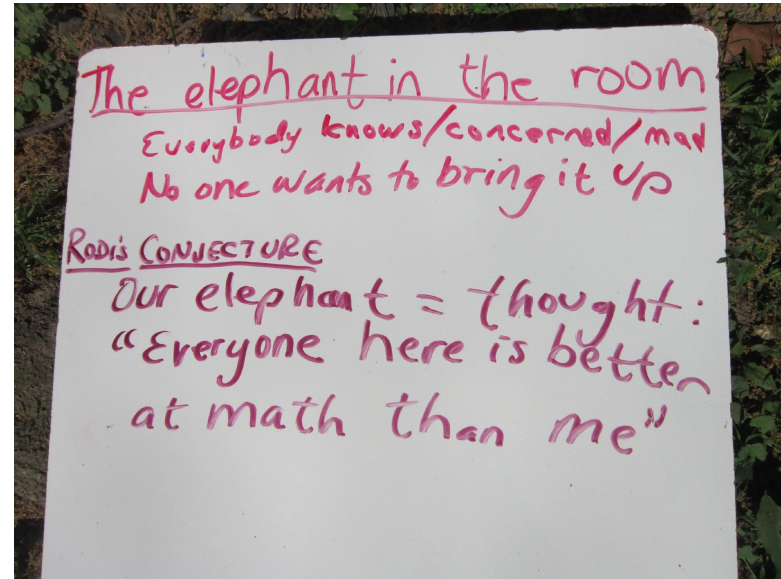 The elephant in the room
Everybody knows/concerned/mad
No one wants to bring it up
RODI'S CONJECTURE
Our elephant = thought:
"Everyone here is better
at math than me"